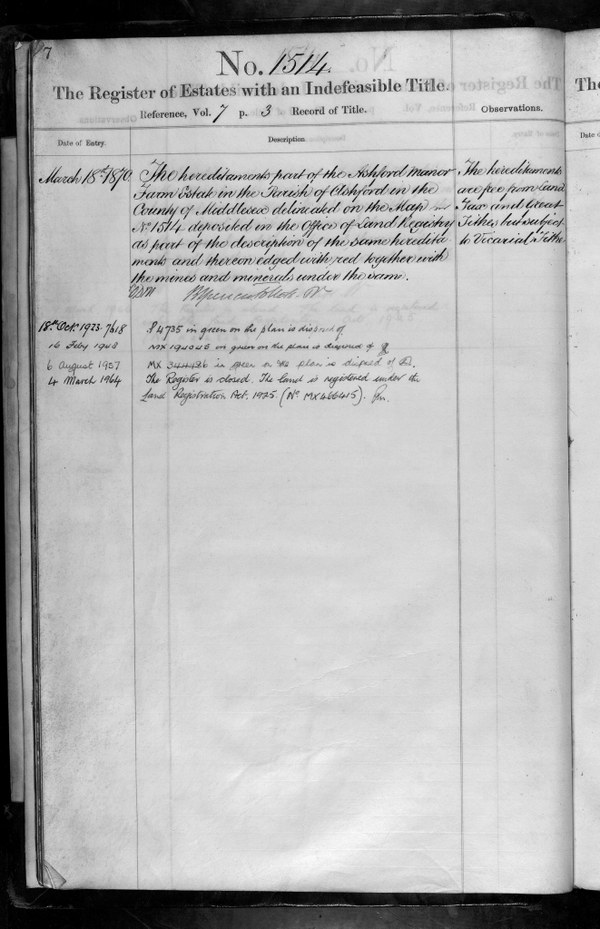 7
No. 1514.
The Register of Estates with an Indefeasible Title.
Reference, Vol. 7 p. 3 Record of Title.
Observations.
Date of Entry.
Description
March 18th 1870.
The hereditaments part of the Ashford Manor
Farm Estate in the Parish of Ashford in the
County of Middlesex delineated on the Map
No. 1514 deposited in the Office of Land Registry
as part of the description of the same heredita
ments and thereon edged with red together with
the mines and minerals under the same.
The hereditaments
are free from Land
Tax and Great
Tithes but subject
to Vicarial Tithe
18th Octr. 1923. 7618
P 4735 in green on the plan is disposed of
16 Feby 1948
MX 194046 in green on the plan is disposed of
6 August 1957
MX 344486 in green on the plan is disposed of
4 March 1964
The Register is closed. The land is registered under the
Land Registration Act, 1925. (No MX466415).
Th
Date of